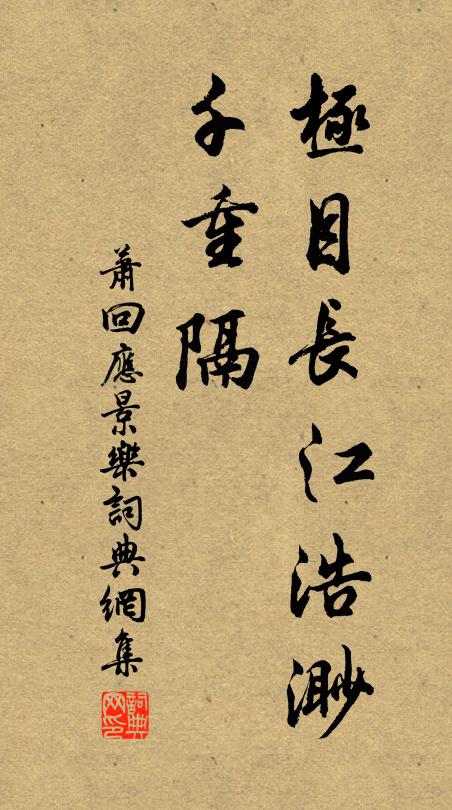 極目長江浩渺
千重隔
蕭回應景樂詞典網集
詞典
网印